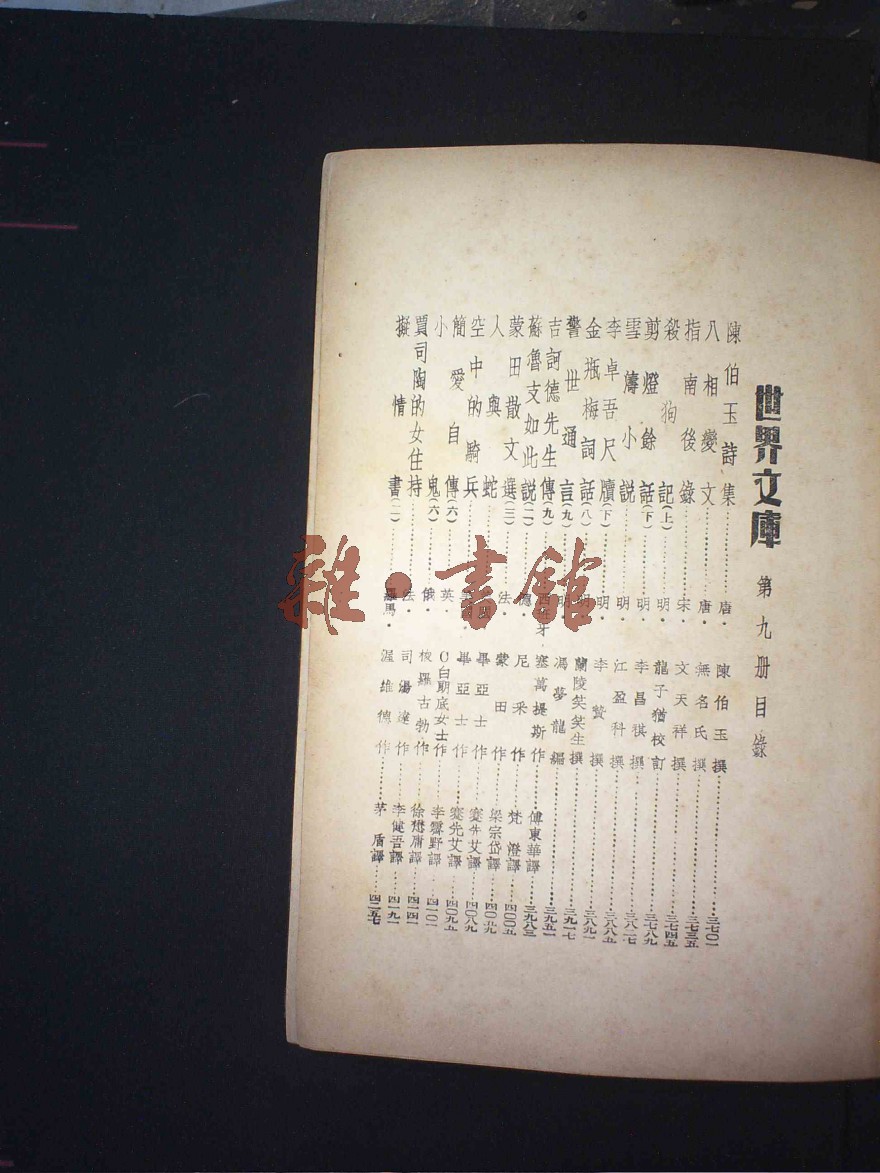 世界文庫 第九册目錄
陳伯玉詩集……唐・陳伯玉撰……三七〇一
八相變文……唐・無名氏撰……三七三五
指南後錄……宋・文天祥撰……三七四五
殺狗記(上)……明・龍子猶校訂……三七八九
剪燈餘話(下)……明・李昌祺撰……三八二七
雪濤小說……明・江盈科撰……三八八五
李卓吾尺牘(下)……明・李贄撰……三八九一
金瓶梅詞話(八)……明・蘭陵笑笑生撰……三九一七
警世通言(九)……明・馮夢龍編……三九五一
吉訶德先生傳(九)……西班牙・塞萬提斯作……傅東華譯……三九八三
蘇魯支如此說(二)……德・尼采作……梵澄譯……四〇〇五
蒙田散文選(三)……法・蒙田作……梁宗岱譯……四〇二九
人與蛇……美國・畢亞士作……蹇先艾譯……四〇八九
空中的騎兵……美國・畢亞士作……蹇先艾譯……四〇九五
簡愛自傳(六)……英・C白朗底女士作……李霽野譯……四一〇一
小鬼(六)……俄・梭羅古勃作……徐懋庸譯……四一四一
賈司陶的女住持……法・司湯達作……李健吾譯……四一九一
擬情書(二)……羅馬・渥維德作……茅盾譯……四二五七
雜・書館